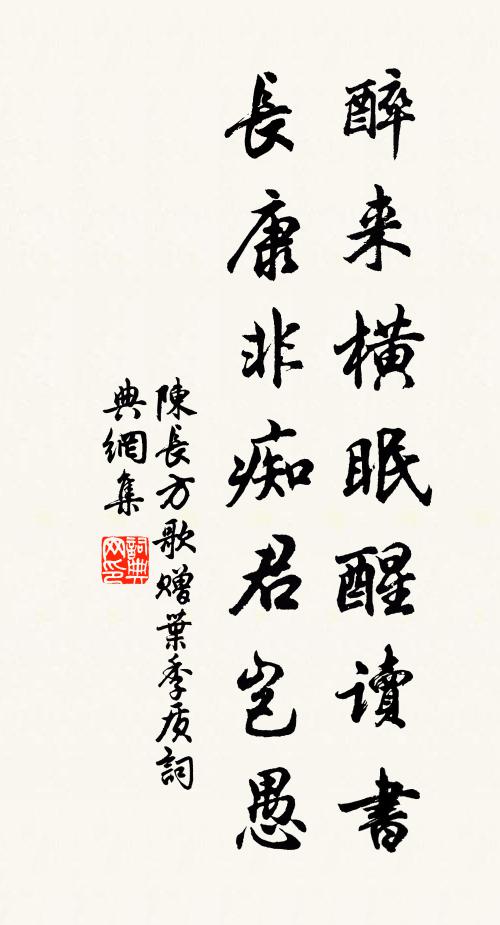 醉来橫眠醒讀書
長康非痴君岂愚
陳長方歌贈葉季质詞
典網集
詞典
网印